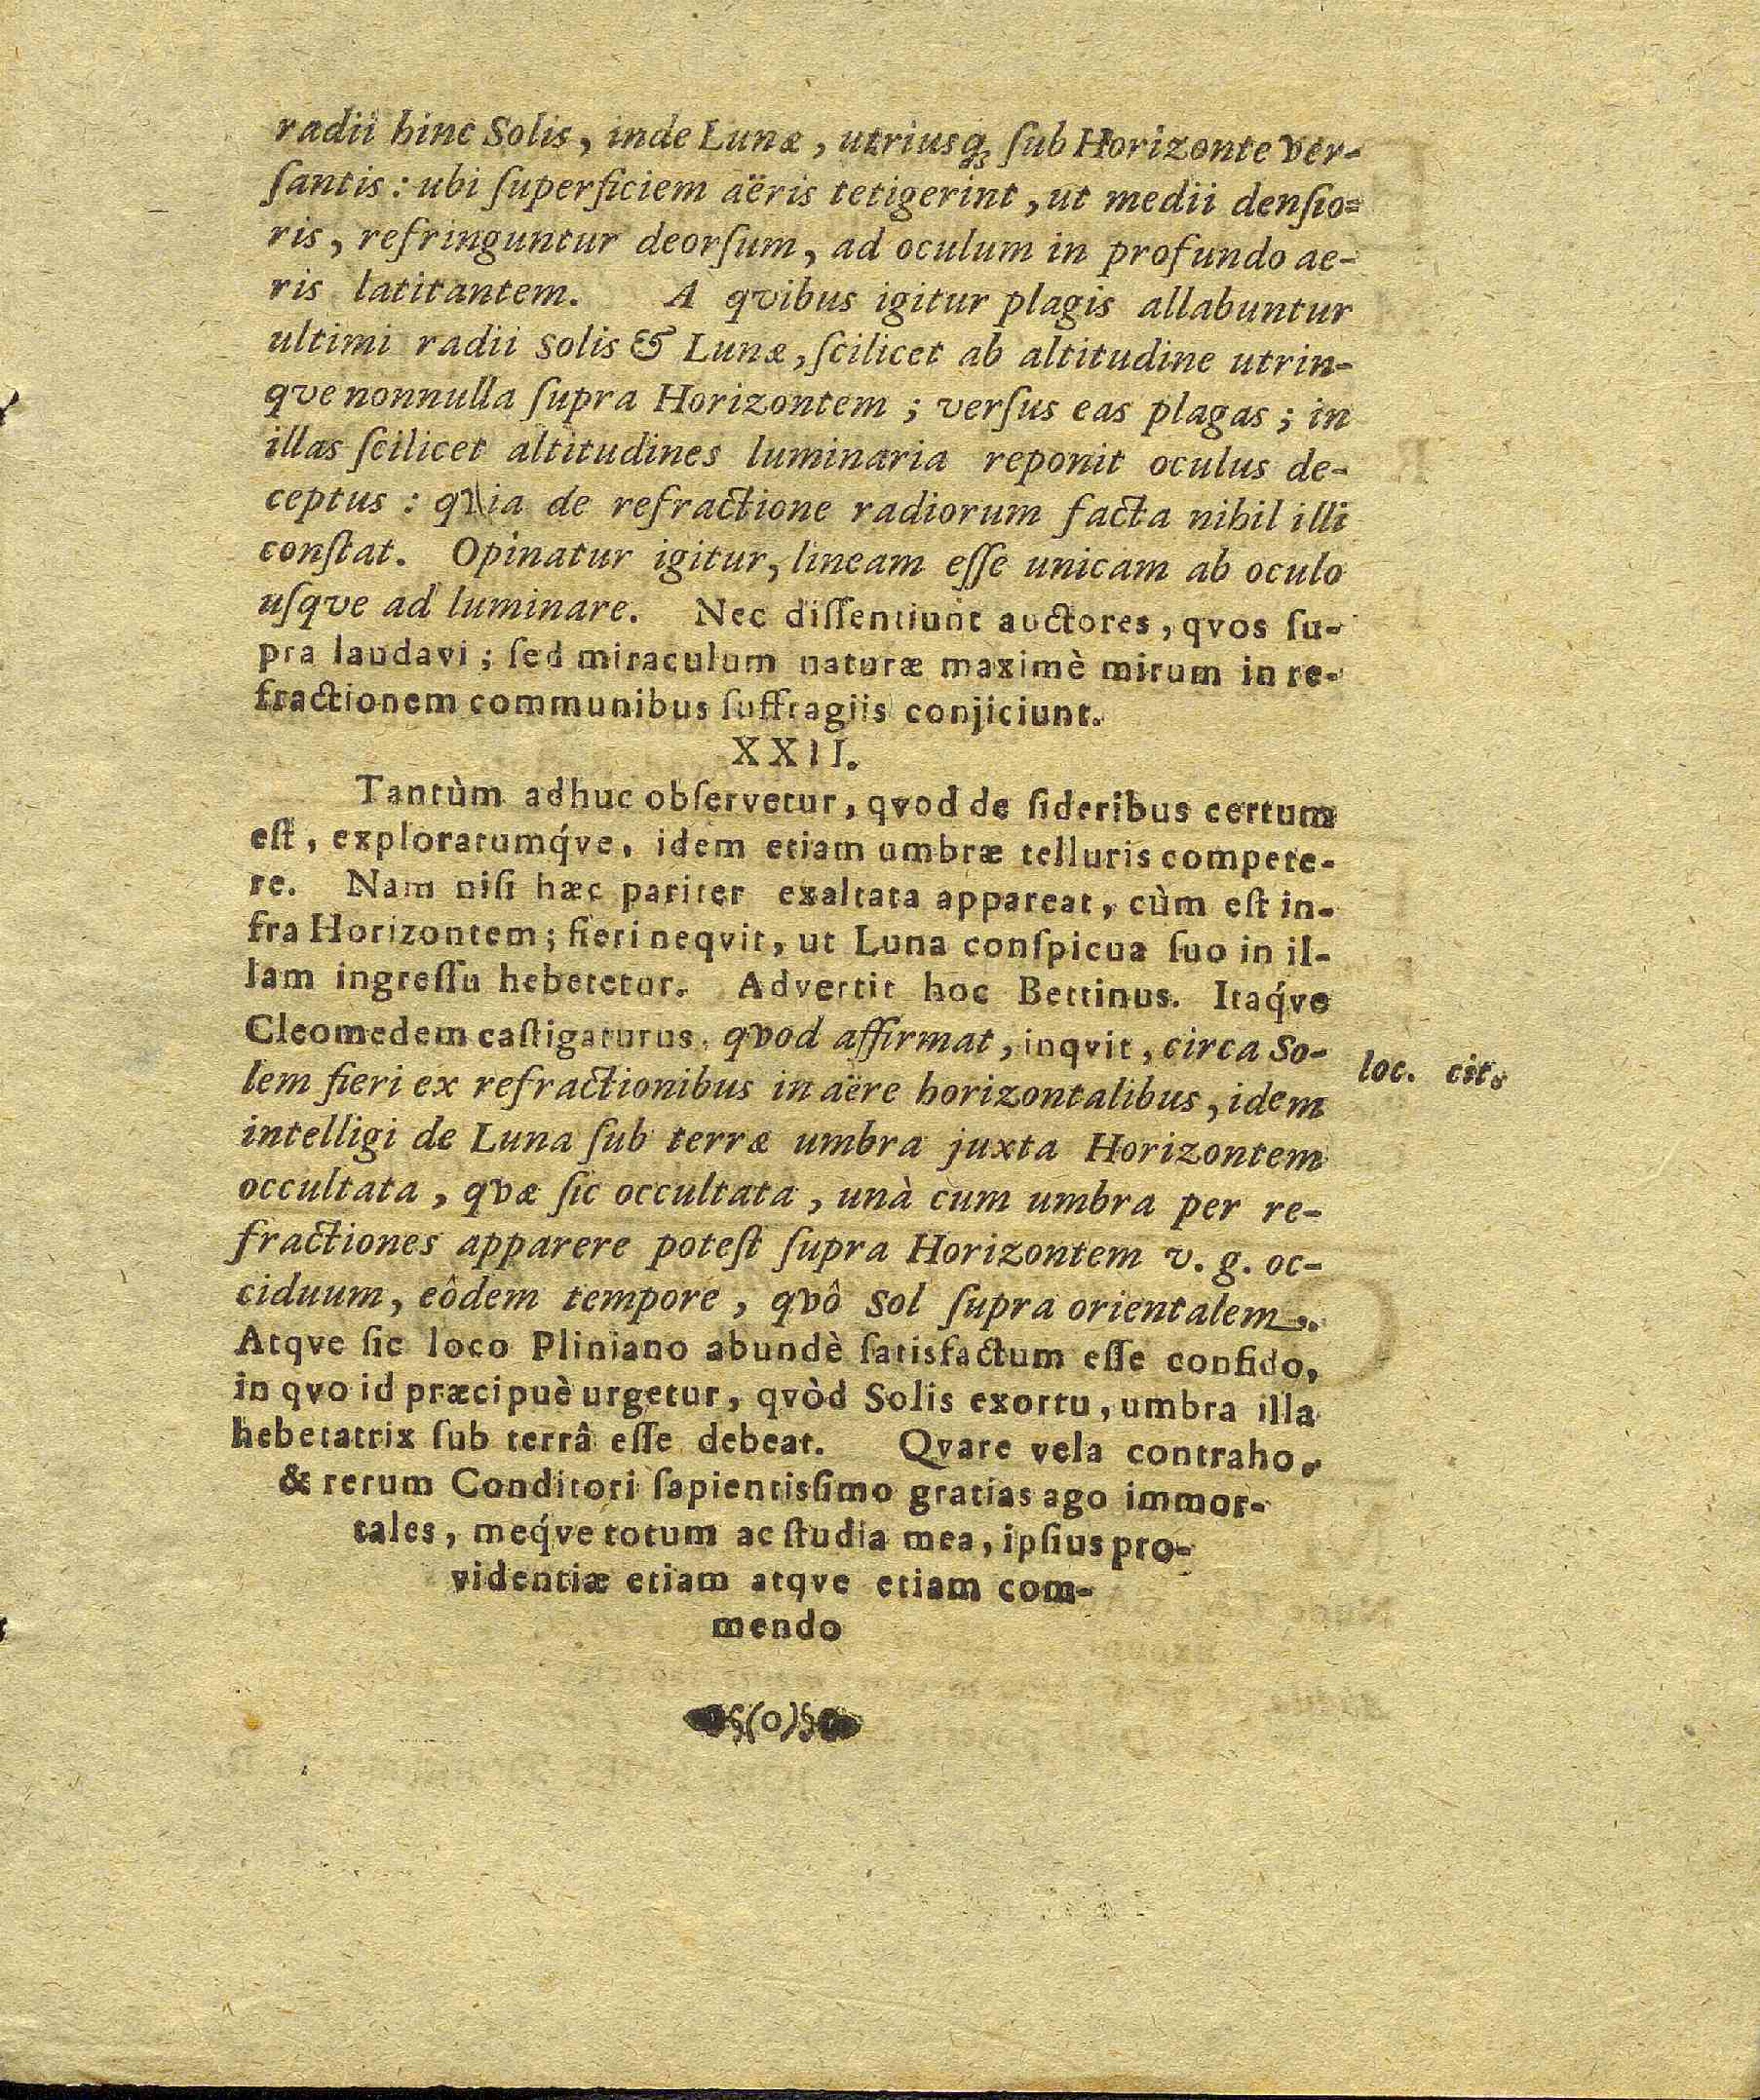 radii hinc Solis, inde Lunæ, utriusq; ſub Horizonte ver-
ſantis: ubi ſuperficiem aëris tetigerint, ut medii denſio-
ris, refringuntur deorſum, ad oculum in profundo ae-
ris latitantem. A qvibus igitur plagis allabuntur
ultimi radii Solis & Lunæ, ſcilicet ab altitudine utrin-
qve nonnulla ſupra Horizontem; verſus eas plagas; in
illas ſcilicet altitudines luminaria reponit oculus de-
ceptus: qvia de refractione radiorum facta nihil illi
conſtat. Opinatur igitur, lineam eſſe unicam ab oculo
uſqve ad luminare. Nec diſſentiunt auctores, qvos ſu-
pra laudavi; ſed miraculum naturæ maximè mirum in re-
fractionem communibus ſuffragiis conjiciunt.
XXII.
Tantùm adhuc obſervetur, qvod de ſideribus certum
eſt, exploratumq́ve, idem etiam umbræ telluris compete-
re. Nam niſi hæc pariter exaltata appareat, cùm eſt in-
fra Horizontem; fieri neqvit, ut Luna conſpicua ſuo in il-
lam ingreſſu hebetetur. Advertit hoc Bettinus. Itaq́ve
Cleomedem caſtigaturus, qvod affirmat, inqvit, circa So-
loc. cit.
lem fieri ex refractionibus in aëre horizontalibus, idem
intelligi de Luna ſub terræ umbra juxta Horizontem
occultata, qvæ ſic occultata, unà cum umbra per re-
fractiones apparere poteſt ſupra Horizontem v. g. oc-
ciduum, eôdem tempore, qvô Sol ſupra orientalem.
Atqve ſic loco Pliniano abundè ſatisfactum eſſe confido,
in qvo id præcipuè urgetur, qvòd Solis exortu, umbra illa
hebetatrix ſub terrâ eſſe debeat. Qvare vela contraho,
& rerum Conditori ſapientiſſimo gratias ago immor-
tales, meq́ve totum ac ſtudia mea, ipſius pro-
videntiæ etiam atqve etiam com-
mendo
§(o)§